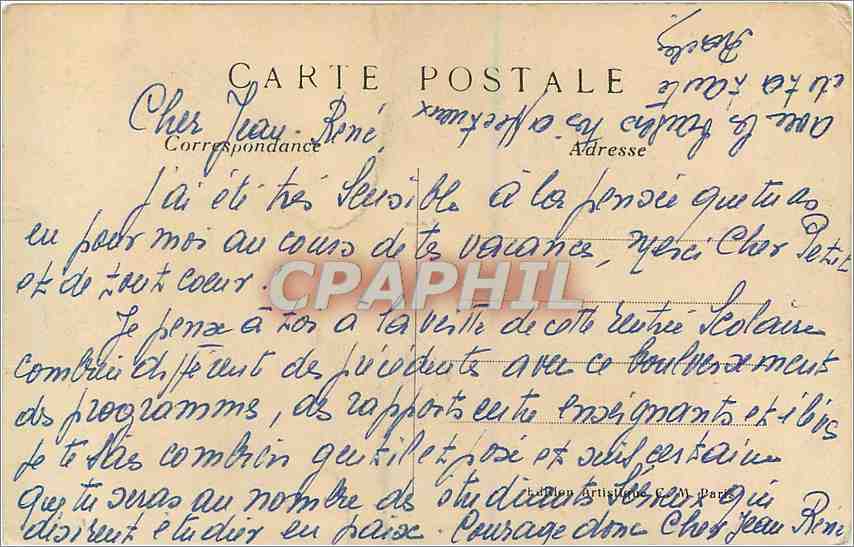 CARTE POSTALE
Correspondance
Adresse
Cher Jean-René,
J'ai été très sensible à la pensée que tu as
eu pour moi au cours de tes vacances, merci Cher Petit
et de tout coeur.
Je pense à toi à la veille de cette rentrée Scolaire
combien différent des précédentes avec ce boulversement
des programmes, des rapports entre enseignants et élèves
je te sais combien gentil et posé et suis certaine
que tu seras au nombre des étudiants sérieux qui
désirent étudier en paix. Courage donc Cher Jean René
avec les baisers très affectueux
de ta tante
Edition Artistique C. M. Paris
CPAPHIL